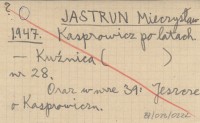 ? O JASTRUN Mieczysław
1947. Kasprowicz po latach
— Kuźnica ( )
nr 28.
Oraz w nrze 39: Jeszcze
o Kasprowiczu.